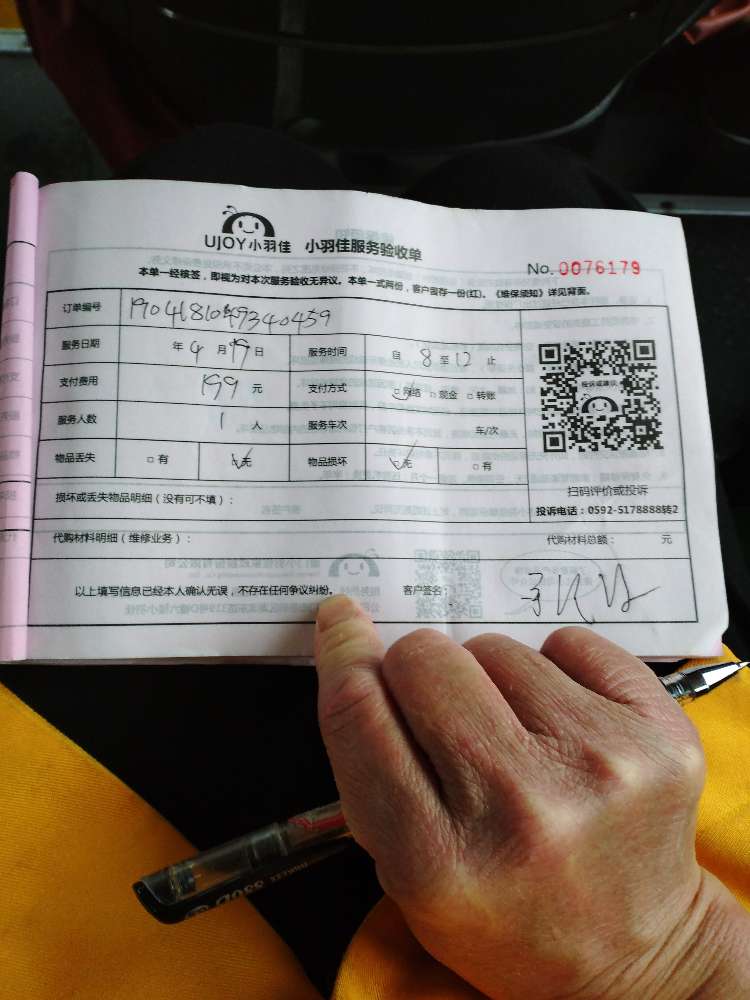 UJOY小羽佳 小羽佳服务验收单
No. 0076179
本单一经核签，即视为对本次服务验收无异议。本单一式两份，客户留存一份(红)。《维保须知》详见背面。
订单编号
服务日期 年 4 月 19 日 服务时间 自 8 至 12 止
支付费用 199 元 支付方式 □网络 □现金 □转账
服务人数 1 人 服务车次 车/次
投诉或建议
物品丢失 □有 □无 物品损坏 □无 □有
扫码评价或投诉
损坏或丢失物品明细（没有可不填）：
投诉电话：0592-5178888转2
代购材料明细（维修业务）： 代购材料总额： 元
以上填写信息已经本人确认无误，不存在任何争议纠纷。 客户签名：